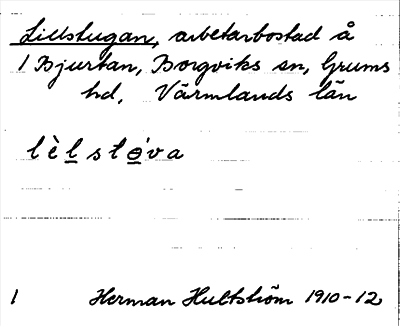 Lillstugan, arbetarbostad å
1 Bjurtan, Borgviks sn, Grums
hd, Värmlands län
lèl̲stɵ̲́va
1 Herman Hultström 1910-12